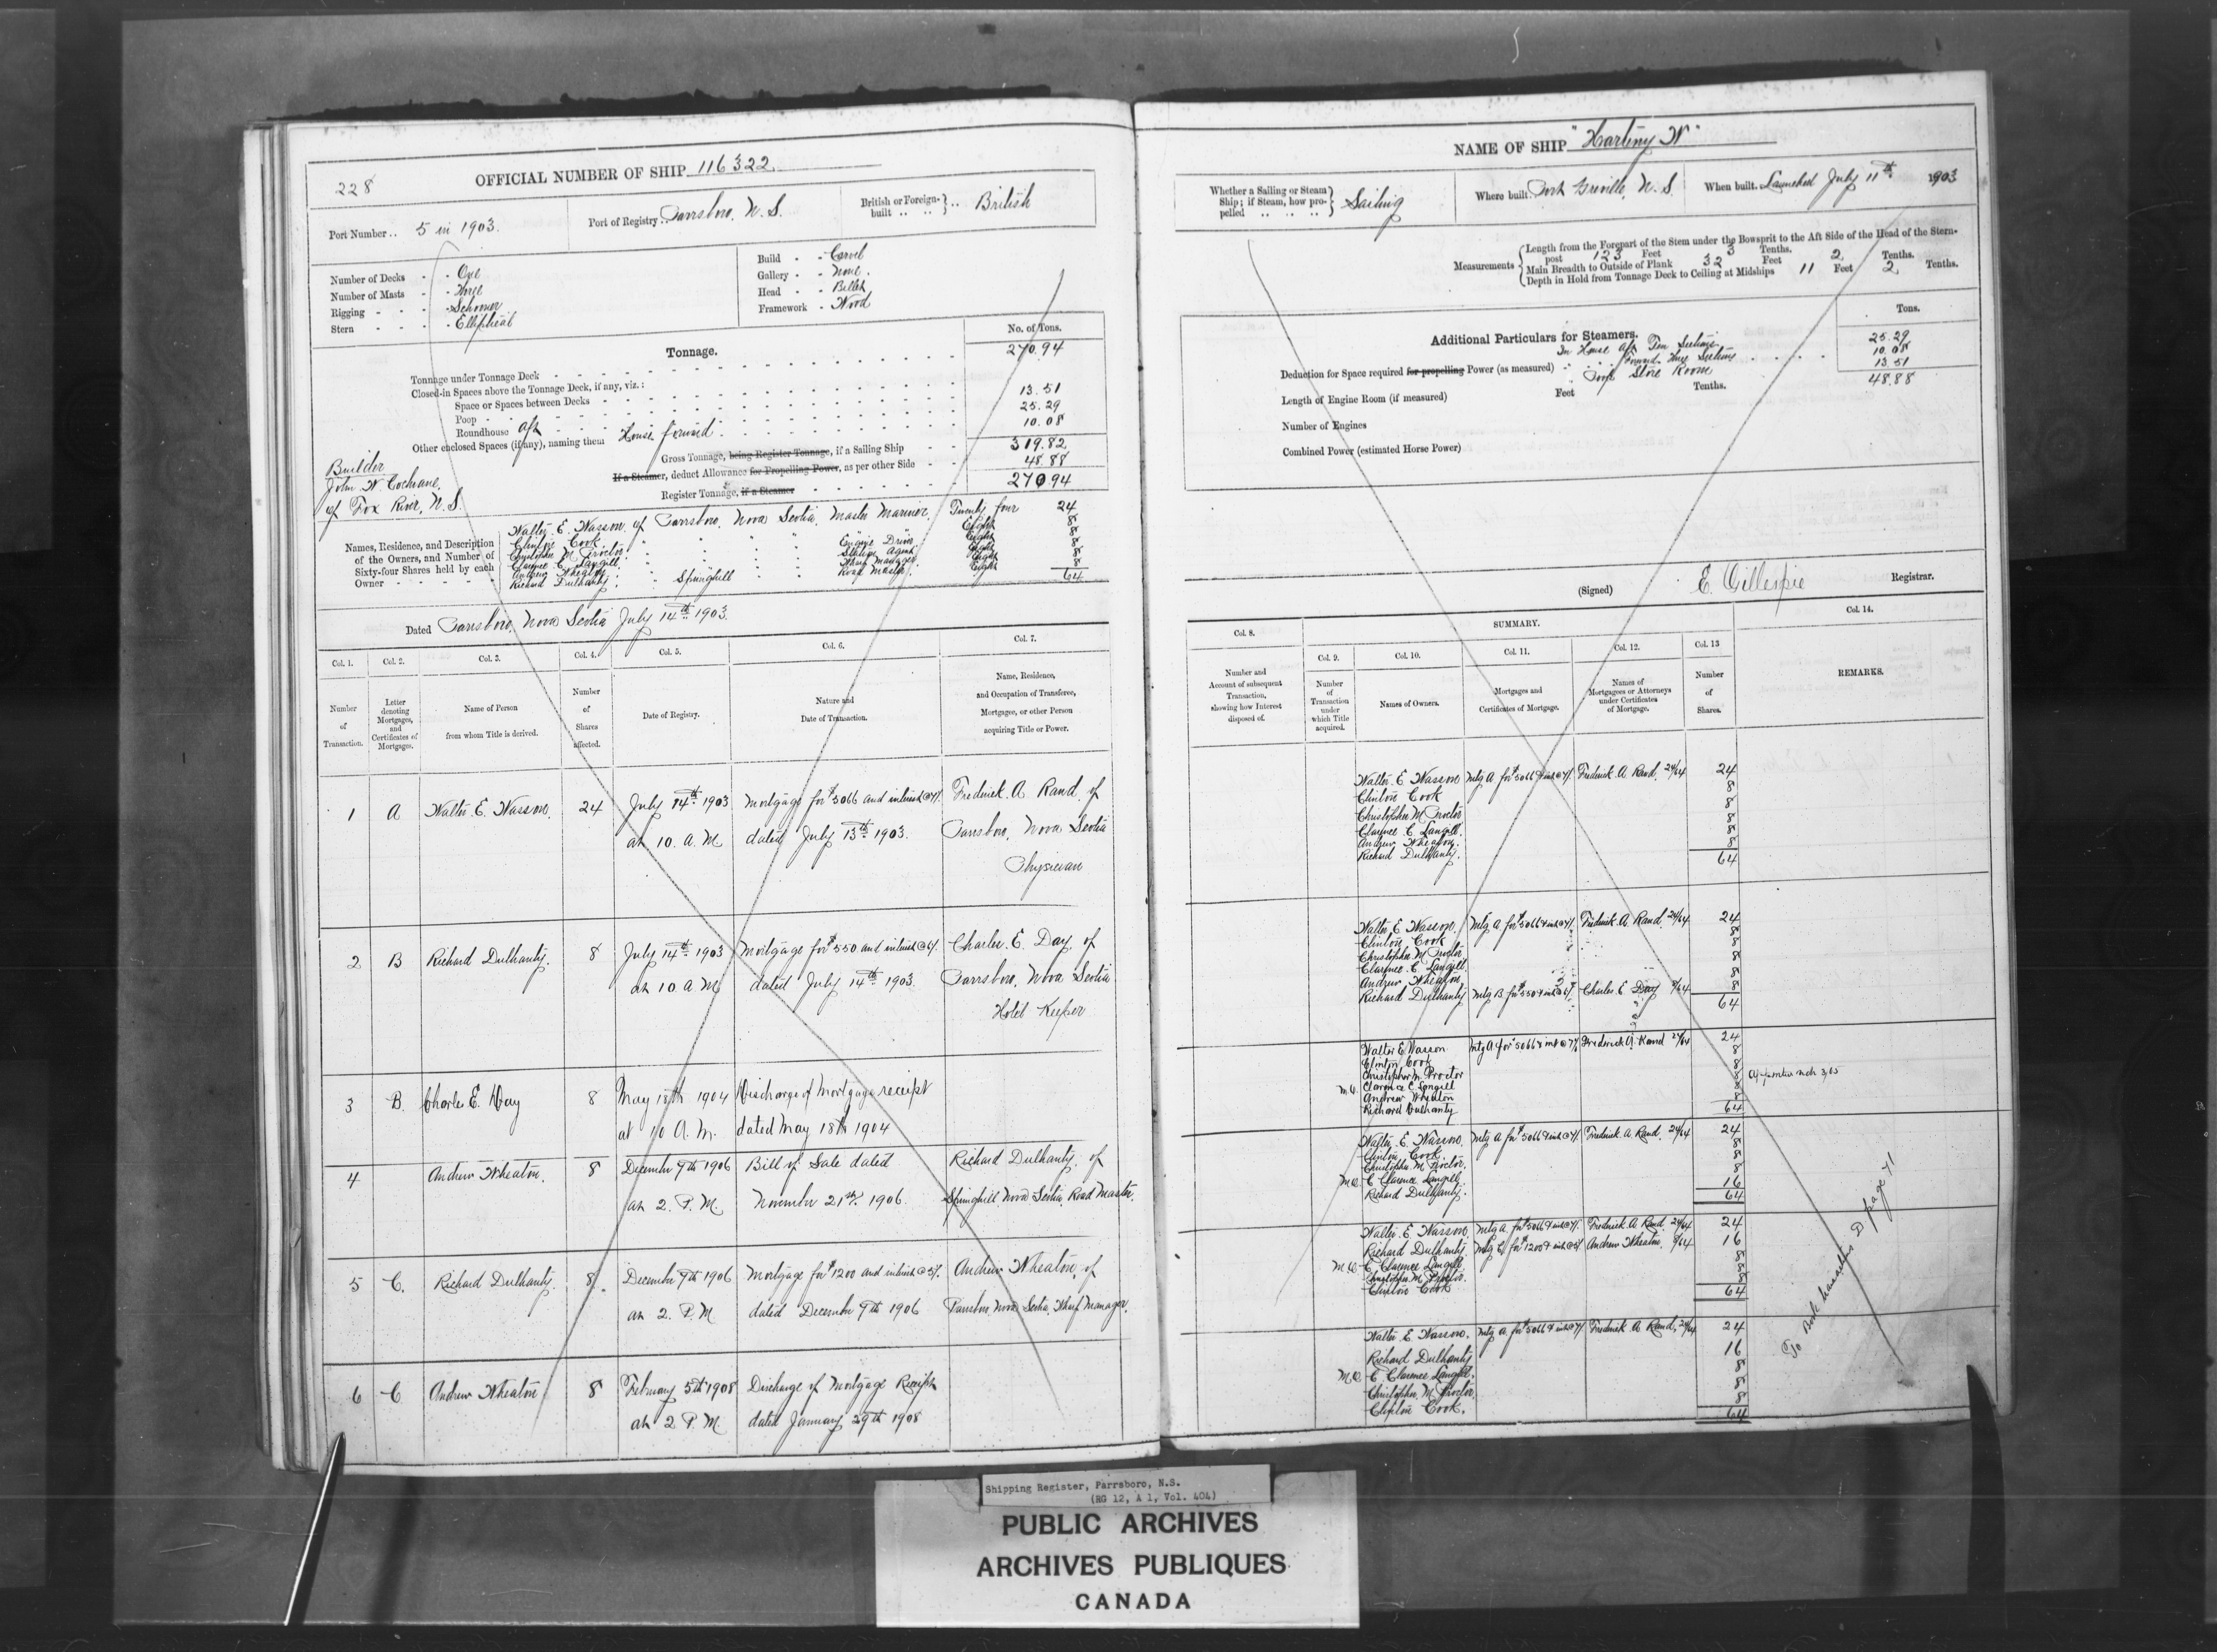 228
OFFICIAL NUMBER OF SHIP 116322
Port Number .. 5 in 1903.
Port of Registry .. Parrsboro, N. S.
British or Foreign-built .. .. British
Number of Decks - - One
Number of Masts - - Three
Rigging - - - - Schooner
Stern - - - - Elliptical
Build - - Carvel
Gallery - - None.
Head - - Billet
Framework - Wood
Tonnage.
No. of Tons.
Tonnage under Tonnage Deck 270.94
Closed-in Spaces above the Tonnage Deck, if any, viz.:
Space or Spaces between Decks 13.51
Poop 25.29
Roundhouse aft 10.08
Other enclosed Spaces (if any), naming them House forward
Gross Tonnage, being Register Tonnage, if a Sailing Ship 319.82
If a Steamer, deduct Allowance for Propelling Power, as per other Side 48.88
Register Tonnage, if a Steamer 270.94
Builder
John W. Cochrane,
of Fox River, N. S.
Names, Residence, and Description of the Owners, and Number of Sixty-four Shares held by each Owner
Walter E. Wasson of Parrsboro, Nova Scotia, Master Mariner, Twenty four 24
Clinton Cook " " " " Eight 8
Christopher M. Proctor " " " Engine Driver Eight 8
Clarence C. Langill " " " Station Agent Eight 8
Andrew Wheaton " " " Wharf Manager Eight 8
Richard Dulhanty " Springhill " " Road Master Eight 8
64
Dated Parrsboro, Nova Scotia July 14th 1903.
Col. 1. Col. 2. Col. 3. Col. 4. Col. 5. Col. 6. Col. 7.
Number of Transaction.
Letter denoting Mortgages, and Certificates of Mortgages.
Name of Person from whom Title is derived.
Number of Shares affected.
Date of Registry.
Nature and Date of Transaction.
Name, Residence, and Occupation of Transferee, Mortgagee, or other Person acquiring Title or Power.
1 A Walter E. Wasson. 24 July 14th 1903 Mortgage for $5066 and interest @ 7% Frederick A Rand of
at 10. A. M dated July 13th 1903. Parrsboro, Nova Scotia
Physician
2 B Richard Dulhanty. 8 July 14th 1903 Mortgage for $550 and interest @ 6% Charles E. Day of
at 10 A M dated July 14th 1903. Parrsboro, Nova Scotia
Hotel Keeper
3 B. Charles E. Day 8 May 18th 1904 Discharge of Mortgage receipt
at 10 A. M. dated May 18th 1904
4 Andrew Wheaton. 8 December 9th 1906 Bill of Sale dated Richard Dulhanty, of
at 2. P. M. November 21st 1906. Springhill Nova Scotia Road Master.
5 C. Richard Dulhanty. 8. December 9th 1906 Mortgage for $1200 and interest @ 5% Andrew Wheaton, of
at 2. P. M dated December 9th 1906 Parrsboro Nova Scotia, Wharf Manager.
6 C Andrew Wheaton 8 February 5th 1908 Discharge of Mortgage Receipt
at 2 P. M dated January 29th 1908
NAME OF SHIP "Hartney W"
Whether a Sailing or Steam Ship; if Steam, how propelled .. .. .. Sailing
Where built Port Greville, N. S
When built. Launched July 11th 1903
Measurements
Length from the Forepart of the Stem under the Bowsprit to the Aft Side of the Head of the Stern-
post 123 Feet 3 Tenths.
Main Breadth to Outside of Plank 32 Feet 2 Tenths.
Depth in Hold from Tonnage Deck to Ceiling at Midships 11 Feet 2 Tenths.
Additional Particulars for Steamers.
Tons.
In House aft Ten Sections 25.29
Deduction for Space required for propelling Power (as measured) " " Forward Three Sections 10.08
Store Room 13.51
48.88
Length of Engine Room (if measured) Feet Tenths.
Number of Engines
Combined Power (estimated Horse Power)
(Signed) E. Gillespie Registrar.
Col. 8. SUMMARY. Col. 14.
Col. 9. Col. 10. Col. 11. Col. 12. Col. 13
Number and Account of subsequent Transaction, showing how Interest disposed of.
Number of Transaction under which Title acquired.
Names of Owners.
Mortgages and Certificates of Mortgage.
Names of Mortgagees or Attorneys under Certificates of Mortgage.
Number of Shares.
REMARKS.
Walter E Wasson Mtg A for $5066 & int @ 7% Frederick A Rand, 24/64 24
Clinton Cook 8
Christopher M Proctor 8
Clarence C. Langill. 8
Andrew Wheaton. 8
Richard Dulhanty. 8
64
Walter E Wasson. Mtg A for $5066 & int @ 7% Frederick A Rand 24/64 24
Clinton Cook 8
Christopher M Proctor 8
Clarence C. Langill 8
Andrew Wheaton 8
Richard Dulhanty Mtg B for $550 & int @ 6% Charles E Day 8/64 8
64
Walter E Wasson Mtg A for $5066 & int @ 7% Frederick A. Rand 24/64 24
Clinton Cook 8
Christopher M. Proctor 8
M.O. Clarence C. Langill 8
Andrew Wheaton 8
Richard Dulhanty 8
64
Walter E. Wasson. Mtg A for $5066 & int @ 7% Frederick A. Rand, 24/64 24
Clinton Cook. 8
Christopher M. Proctor. 8
M.O. C Clarence Langill 8
Richard Dulhanty. 16
64
Walter E. Wasson Mtg A for $5066 & int @ 7% Frederick A. Rand 24/64 24
Richard Dulhanty Mtg C for $1200 & int @ 5% Andrew Wheaton, 8/64 16
M.O. C. Clarence Langill 8
Christopher M. Proctor 8
Clinton Cook 8
64
Walter E. Wasson. Mtg A for $5066 & int @ 7% Frederick A Rand, 24/64 24
Richard Dulhanty 16
M.O. C Clarence Langill. 8
Christopher M. Proctor. 8
Clinton Cook. 8
64
To Book page 71
Shipping Register, Parrsboro, N.S.
(RG 12, A 1, Vol. 404)
PUBLIC ARCHIVES
ARCHIVES PUBLIQUES
CANADA